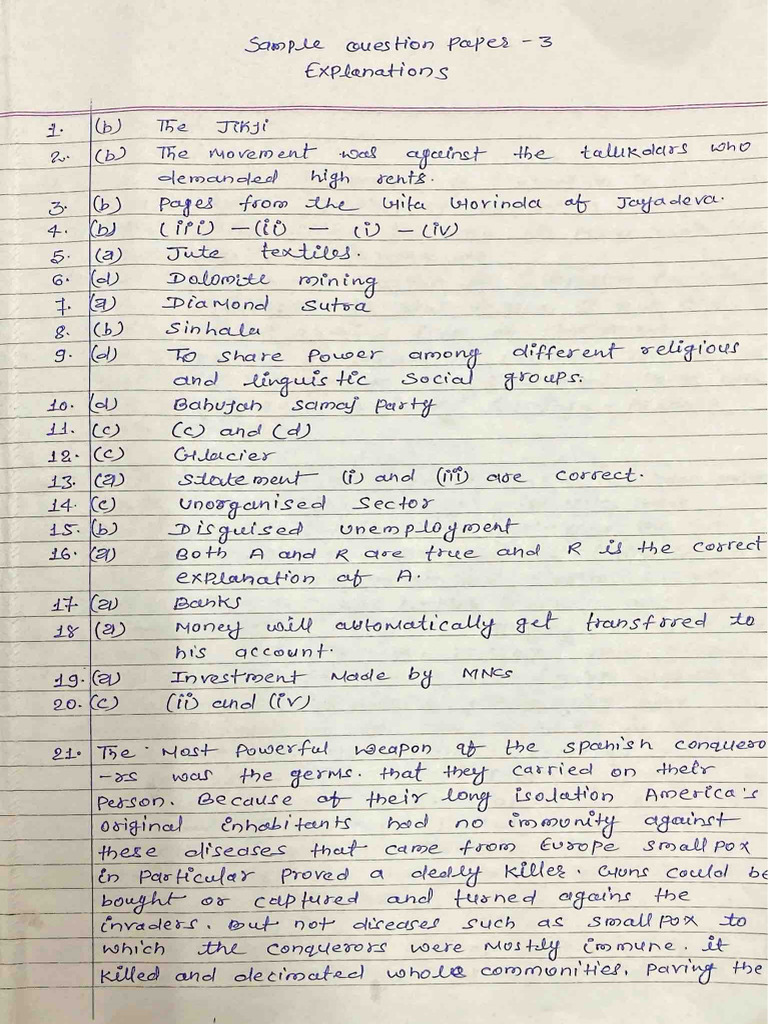 Sample Question Paper - 3
Explanations
1. (b) The Jikji
2. (b) The movement was against the talukdars who
demanded high rents.
3. (b) Pages from the Gita Govinda of Jayadeva.
4. (b) (iii) - (ii) - (i) - (iv)
5. (a) Jute textiles.
6. (d) Dolomite mining
7. (a) Diamond Sutra
8. (b) Sinhala
9. (d) To share Power among different religious
and linguistic social groups.
10. (d) Bahujan Samaj Party
11. (c) (c) and (d)
12. (c) Glacier
13. (a) Statement (i) and (iii) are correct.
14. (c) Unorganised Sector
15. (b) Disguised unemployment
16. (a) Both A and R are true and R is the correct
explanation of A.
17. (a) Banks
18 (a) Money will automatically get transfred to
his account.
19. (a) Investment Made by MNCs
20. (c) (ii) and (iv)
21. The Most Powerful weapon of the Spanish conquero
-rs was the germs. that they carried on their
Person. Because of their long isolation America's
original inhabitants had no immunity against
these diseases that came from Europe smallpox
in Particular Proved a dedly killer. Guns could be
bought or captured and turned agains the
invaders. But not diseases such as smallpox to
which the conquerors were Mostly immune. it
killed and decimated whole communities. Paving the